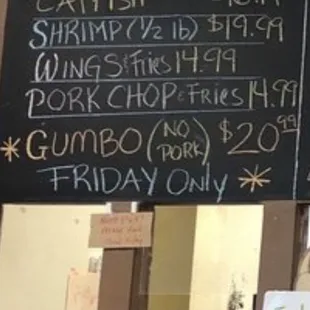 SHRIMP (1/2 lb) $19.99
WINGS & Fries 14.99
PORK CHOP & Fries 14.99
* GUMBO (NO PORK) $20.99
FRIDAY Only *